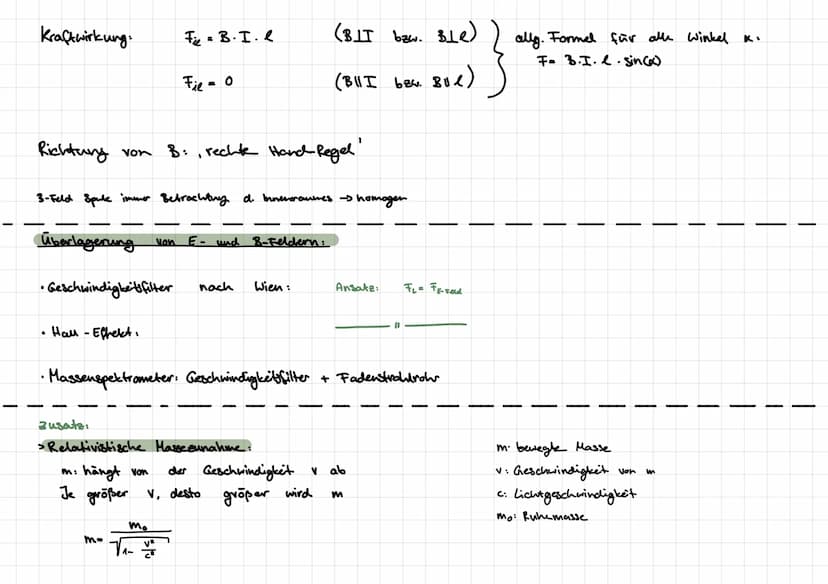 Kraftwirkung: F_il = B · I · l (B⊥I bzw. B⊥l) } allg. Formel für alle Winkel α:
F = B · I · l · sin(α)
F_il = 0 (B∥I bzw. B∥l)
Richtung von B: ‚rechte Hand-Regel'
B-Feld Spule immer Betrachtung d. Innenraumes → homogen
Überlagerung von E- und B-Feldern:
· Geschwindigkeitsfilter nach Wien: Ansatz: F_L = F_E-Feld
· Hall-Effekt: —— " ——
· Massenspektrometer: Geschwindigkeitsfilter + Fadenstrahlrohr
Zusatz:
> Relativistische Massezunahme:
m: hängt von der Geschwindigkeit v ab
Je größer v, desto größer wird m
m = m₀ / √(1 - v²/c²)
m: bewegte Masse
v: Geschwindigkeit von m
c: Lichtgeschwindigkeit
m₀: Ruhemasse